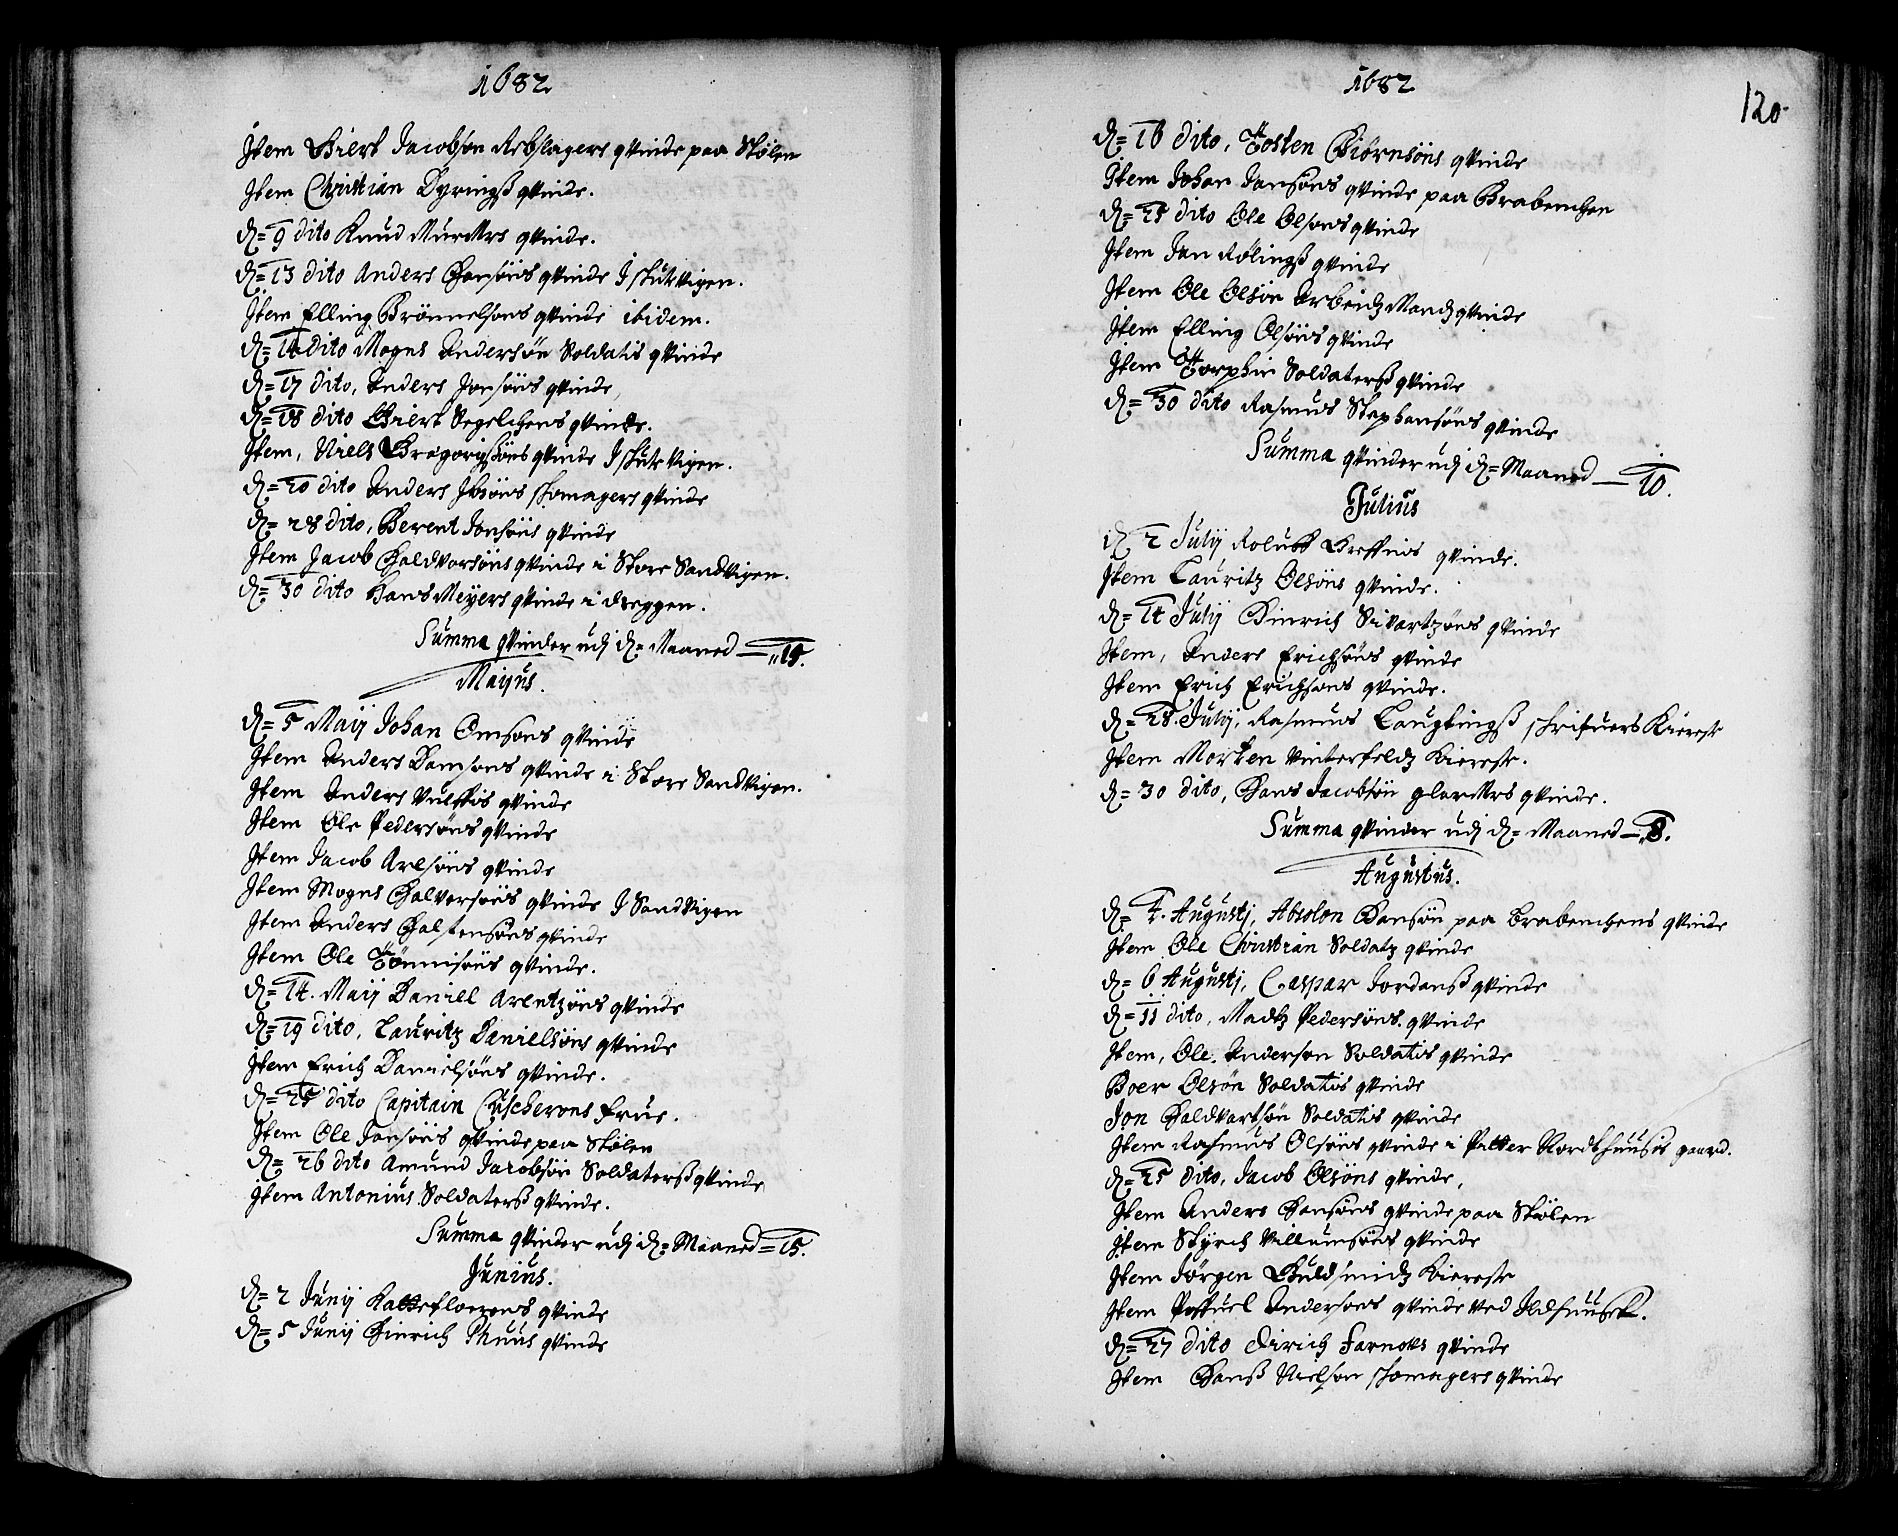 1682
Item Giert Jacobsøn Rebslagers qvinde paa Stølen
Item Christian Dyringß qvinde.
D= 9 dito Knud MurMrs qvinde.
D= 13 dito Anders Hansøns qvinde I skutvigen.
Item Elling Brønnelsons qvinde ibidem.
D= 14 dito Mogns Andersøn Soldatis qvinde
D= 17 dito, Anders Jonsøns qvinde,
D= 18 dito Giert Segelchens qvinde.
Item, Niels Gregorijsøns qvinde I skutvigen.
D= 20 dito Anders Ibsøns skomagers qvinde
D= 28 dito, Berent Jonsøns qvinde
Item Jacob Haldvorsøns qvinde i Store Sandvigen.
D= 30 dito Hans Meyers qvinde i dreggen.
Summa qvinder udj d= Maaned — 15.
Majus.
D= 5 Maij Johan Omsøns qvinde
Item Anders Damsons qvinde i Store Sandvigen.
Item Anders qvinde
Item Ole Pedersøns qvinde
Item Jacob Arlsøns qvinde
Item Mogns Halvorsøns qvinde I Sandvigen
Item Anders Halstensøns qvinde
Item Ole Tønnisøns qvinde.
D= 14. Maij Daniell Arentzøns qvinde
D= 19 dito, Lauritz Danielsøns qvinde
Item Erich Danielsøns qvinde.
D= 25 dito Capitain Cicherons frue.
Item Ole Jonsøns qvinde paa Stølen
D= 26 dito Amund Jacobsøn Soldaterß qvinde
Item Antonius Soldaterß qvinde.
Summa qvinder udj d= Maaned = 15.
Junius.
D= 2 Junij qvinde
D= 5 Junij Hinrich Thuus qvinde
1682
120
D= 16 dito, Tosten Biørnsøns qvinde
Item Johan Jansøns qvinde paa Brabenchen
D= 25 dito Ole Olsons qvinde
Item Jan Rølingß qvinde
Item Ole Olsøn Arbeidz Mandz qvinde
Item Elling Olsøns qvinde
Item Torphin Soldaterß qvinde
D= 30 dito Rasmus Stephansøns qvinde
Summa qvinder udj d= Maaned — 10.
Julius
D 2 Julij Roluff Greffnis qvinde.
Item Lauritz Olsøns qvinde.
D= 14 Julij Hinrich Sivartzøns qvinde
Item, Anders Erichsøns qvinde
Item Erich Erichsons qvinde.
D= 28 Julij, Rasmus Laugtingß skrifuers Kiereste
Item Morten Vinterfeldz Kiereste.
D= 30 dito, Hans Jacobsøn glarMrs qvinde.
Summa qvinder udj d= Maaned — 8.
Augustus.
D= 4. Augustj, Absolon Hansøn paa brabenchens qvinde
Item Ole Christian Soldatz qvinde
D= 6 Augustj, Caspar Jordanß qvinde
D= 11 dito, Madtz Pedersøns qvinde
Item, Ole. Anderson Soldatis qvinde
Boer Olsøn Soldatis qvinde
Jon Haldvartsøn Soldatis qvinde
Item Rasmus Olsøns qvinde i Petter Nordthuusis gaard.
D= 25 dito, Jacob Olsøns qvinde,
Item Anders Hansøns qvinde paa Stølen
Item Styrch Villumsøns qvinde
Item Jørgen Guldsmidz Kiereste
Item Poffuel Andersons qvinde ved Ildhuuset.
D= 27 dito Dirich Farnols qvinde
Item Hanß Nielsøn skomagers qvinde